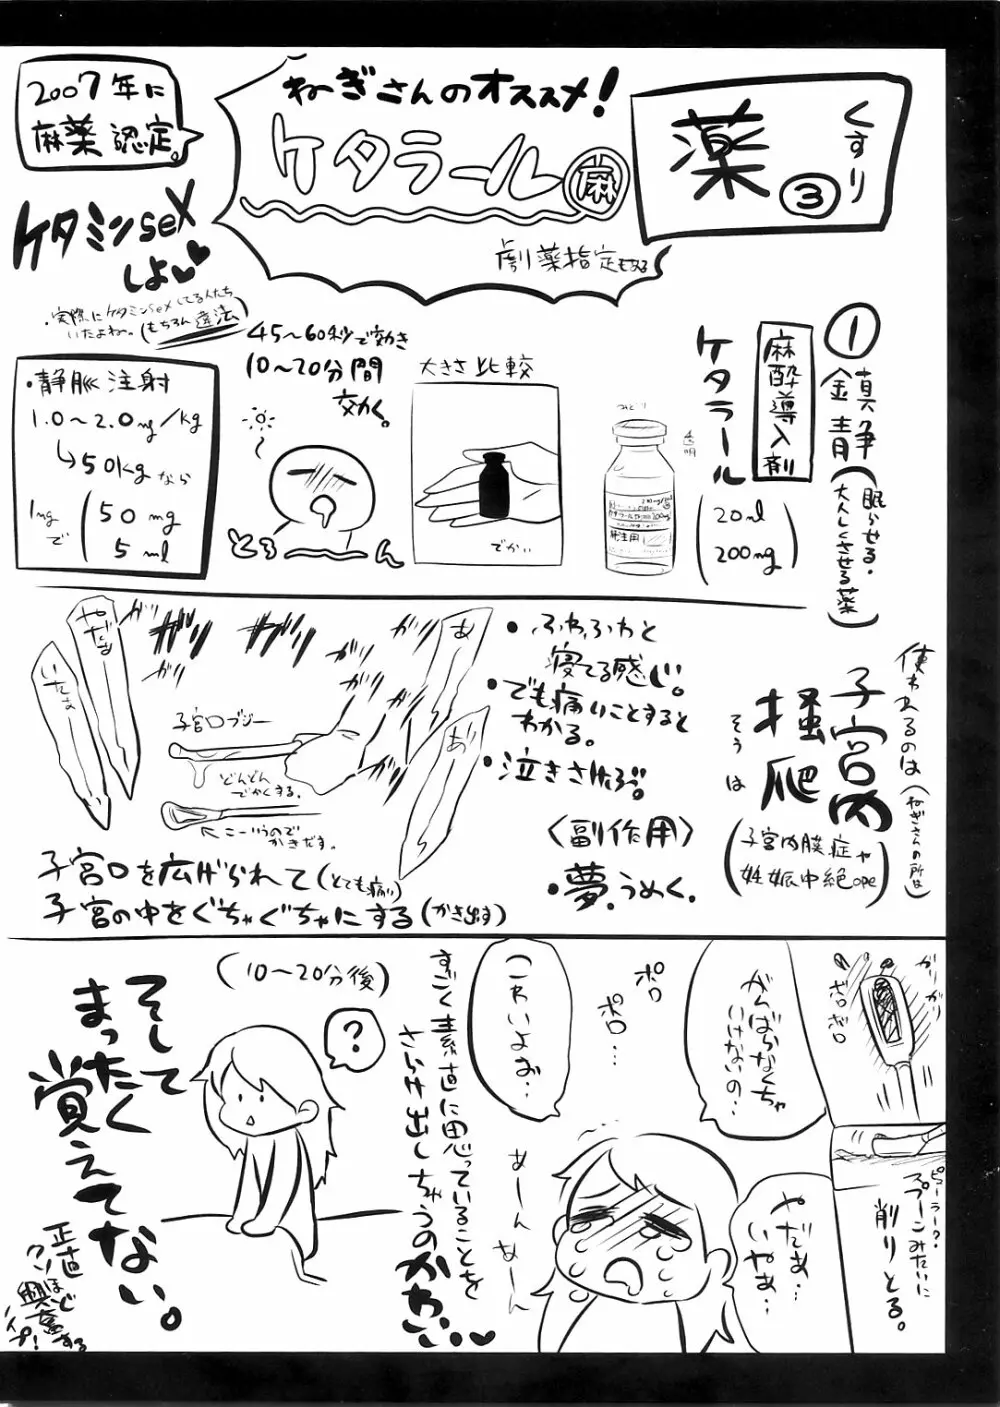 薬
くすり
③
ねぎさんのオススメ!
ケタラール
麻
劇薬指定もある
2007年に
麻薬認定。
ケタミンsex
しよ♥♥
・実際にケタミンsexしてる人たち
いたよね〜。(もちろん違法)
①鎮静(眠らせる・
大人しくさせる薬)
麻酔導入剤
ケタラール
(20ml
200mg)
透明
大きさ比較
でかい
45〜60秒で効き
10〜20分間
効く。
とろ〜ん
・静脈注射
1.0〜2.0mg/kg
↳50kgなら
1mg
で
(50mg
5ml
使われるのは(ねぎさんの所は)
子宮内
掻爬
そうは
(子宮内膜症や
妊娠中絶ope)
・ふわふわと
寝てる感じ。
・でも痛いことすると
わかる。
・泣きさけぶ。
〈副作用〉
・夢・うめく。
あ
あ
ガリ
ガリ
ガリ
ガリ
ガリ
やだぁ
いたぁ
子宮口ブジー
どんどん
でかくする。
こーいうのでかきだす。
子宮口を広げられて(とても痛い)
子宮の中をぐちゃぐちゃにする(かき出す)
ガリガリ
ボロボロ
スプーンみたいに
削りとる。
がんばらなくちゃ
いけないの…
やだぁ…
いやぁ…
ポロ
ポロ…
こわいよぉ…
あーん
あーん
すごく素直に思っていることを
さらけ出しちゃうのかわいい♥
(10〜20分後)
?
そして
まったく
覚えてない。
正直
クソほど
興奮する